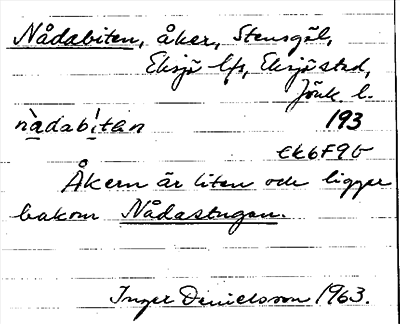 Nådabiten, åker, Stensgöl,
Eksjö lfs, Eksjö stad,
Jönk. l.
nàdabítan 193
Ek6F9b
Åkern är liten och ligger
bakom Nådastugan.
Inger Danielsson 1963.